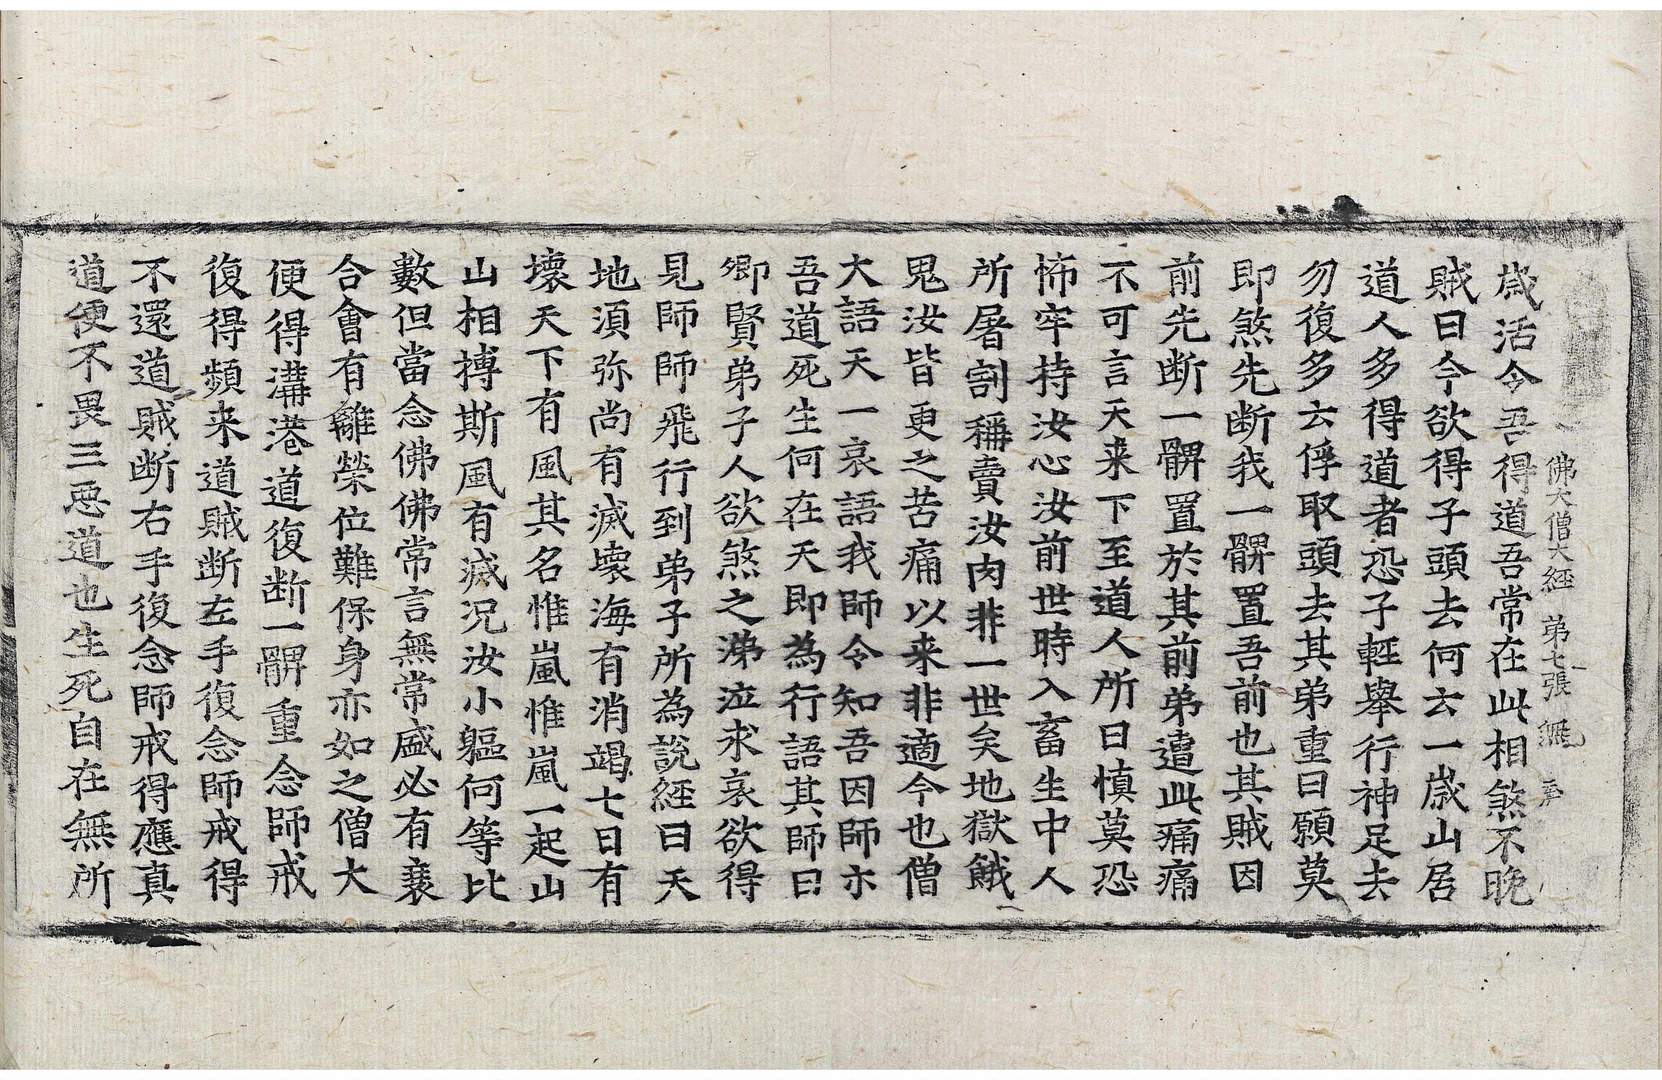 佛大僧大經 第七張 無
歲活今吾得道吾常在此相煞不晚
賊曰今欲得子頭去何云一歲山居
道人多得道者恐子輕舉行神足去
勿復多云俘取頭去其弟重曰願莫
即煞先断我一髀置吾前也其賊因
前先断一髀置於其前弟遭此痛痛
不可言天来下至道人所曰慎莫恐
怖牢持汝心汝前世時入畜生中人
所屠割稱賣汝肉非一世矣地獄餓
鬼汝皆更之苦痛以来非適今也僧
大語天一哀語我師令知吾因師亦
吾道死生何在天即為行語其師曰
卿賢弟子人欲煞之涕泣求哀欲得
見師師飛行到弟子所為說經曰天
地湏弥尚有滅壞海有消竭七日有
壞天下有風其名惟嵐惟嵐一起山
山相搏斯風有滅况汝小軀何等比
數但當念佛佛常言無常盛必有衰
合會有離榮位難保身亦如之僧大
便得溝港道復断一髀重念師戒
復得頻来道賊断左手復念師戒得
不還道賊断右手復念師戒得應真
道便不畏三惡道也生死自在無所